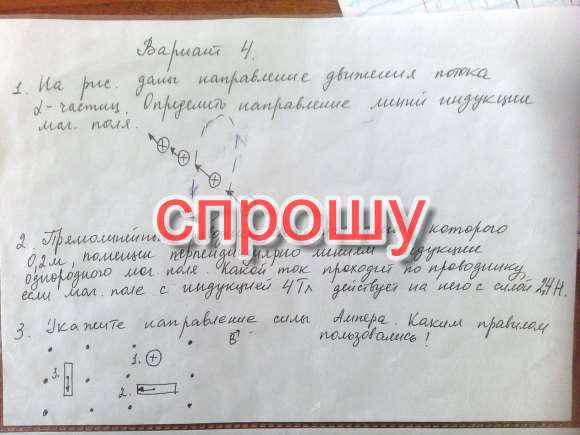 Вариант 4.
1. На рис. даны направление движения потока
α-частиц. Определить направление линий индукции
маг. поля.
спрошу
2. которого
0,2м, помещен линиям индукции
однородного маг. поля. Какой ток проходит по проводнику,
если маг. поле с индукцией 4Тл действует на него с силой 2,4Н.
3. Укажите направление силы Ампера. Каким правилом
B пользовались!
1. +
3.
2.